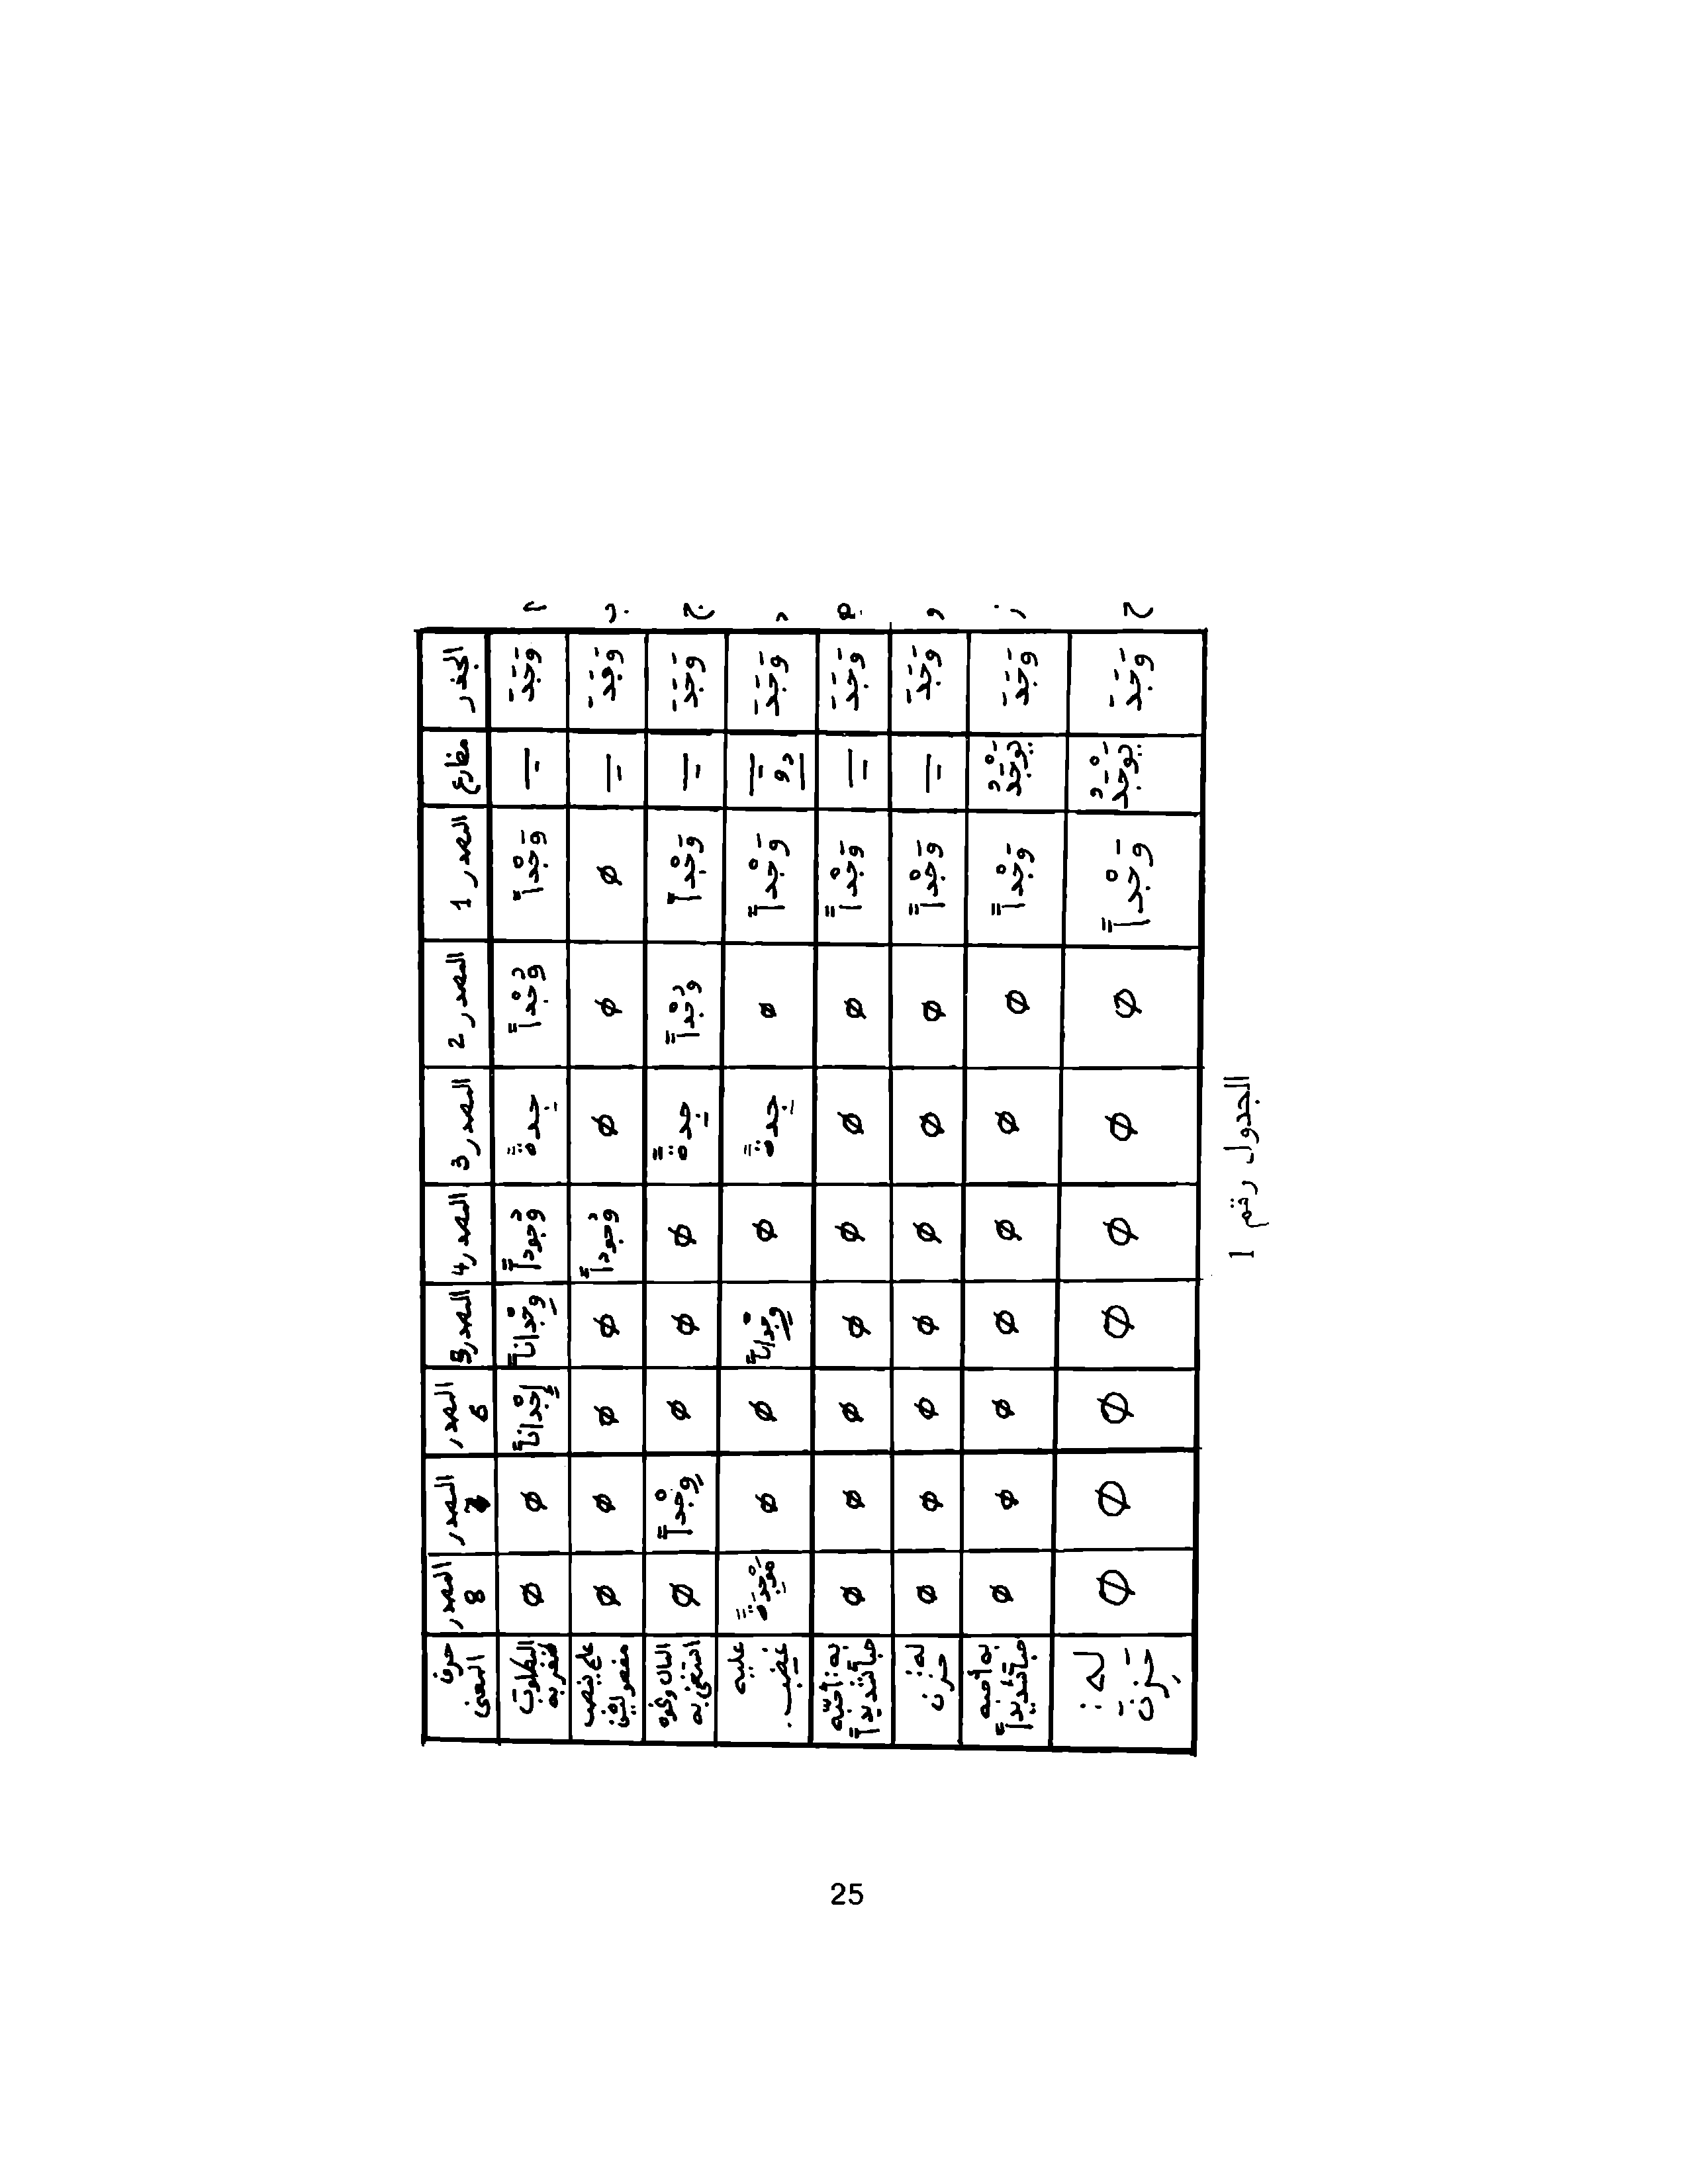 الجذر مضارع المصدر 1 المصدر 2 المصدر 3 المصدر 4 المصدر 5 المصدر 6 المصدر 7 المصدر 8 حرف المعنى
أ وَجَدَ = وَجْداً وُجْداً جِدةً وُجُوداً وِجْداناً إِجْداناً ø ø المطلوب ظفر به
ب وَجَدَ = ø ø ø وُجُوداً ø ø ø ø علم ينصب مفعولين
ج وَجَدَ = وَجْداً وُجْداً جِدةً ø ø ø وِجْداً ø المال ونحوه استغنى به
د وَجَدَ = وَجْداً ø جِدةً ø وِجْداناً ø ø مَوْجِدَةً عليه غضِب.
هـ وَجَدَ = وَجْداً ø ø ø ø ø ø ø به: أحبّه حباً شديداً
و وَجَدَ = وَجْداً ø ø ø ø ø ø ø له: حزن
ز وَجَدَ يَوْجَدُ وَجْداً ø ø ø ø ø ø ø به أحبه حباً شديداً
ح وَجَدَ يَوْجَدُ وَجْداً ø ø ø ø ø ø ø له: حَزِنَ
الجدول رقم 1
25